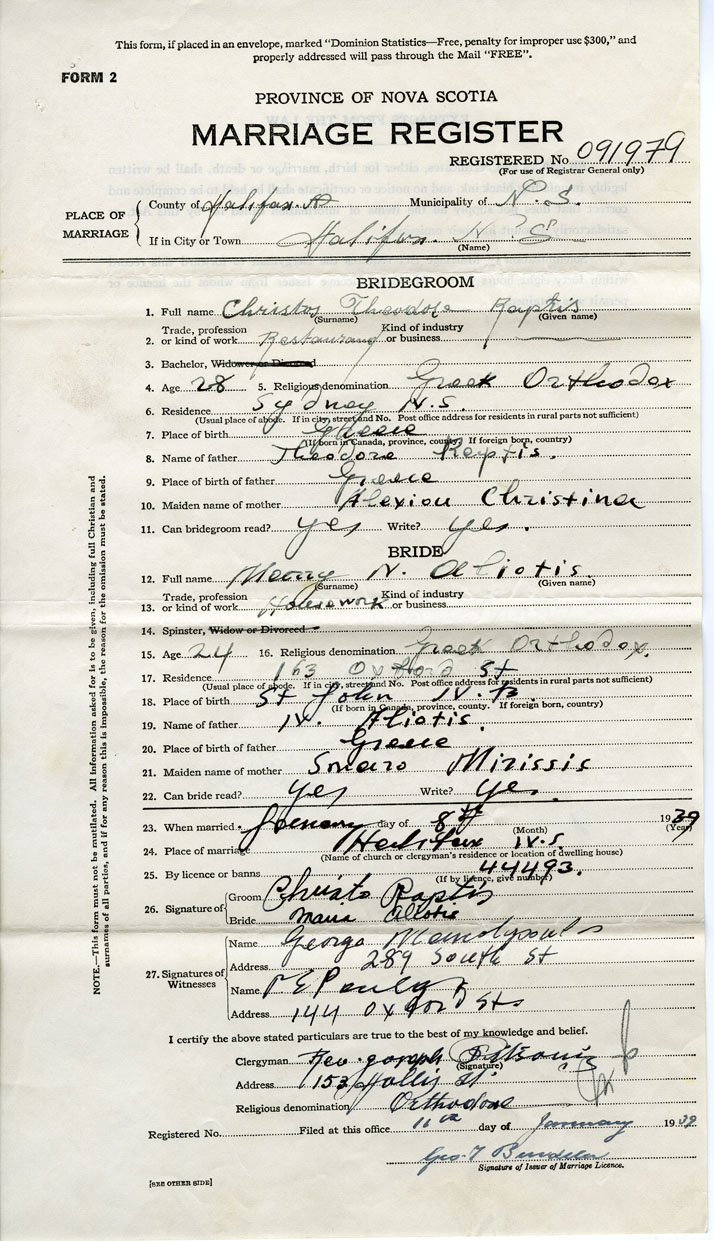 This form, if placed in an envelope, marked "Dominion Statistics—Free, penalty for improper use $300," and
properly addressed will pass through the Mail "FREE".
FORM 2
PROVINCE OF NOVA SCOTIA
MARRIAGE REGISTER
REGISTERED No. 091979
(For use of Registrar General only)
PLACE OF MARRIAGE
County of Halifax Municipality of N.S.
If in City or Town Halifax. N.S
(Name)
BRIDEGROOM
1. Full name Christos Theodore Raptis
(Surname) (Given name)
Trade, profession Kind of industry
2. or kind of work Restaurant or business
3. Bachelor, Widower or Divorced
4. Age 28 5. Religious denomination Greek Orthodox
6. Residence Sydney N.S.
(Usual place of abode. If in city, street and No. Post office address for residents in rural parts not sufficient)
7. Place of birth Greece
(If born in Canada, province, county. If foreign born, country)
8. Name of father Theodore Raptis.
9. Place of birth of father Greece
10. Maiden name of mother Alexiou Christina
11. Can bridegroom read? yes Write? yes.
BRIDE
12. Full name N. Aliotis.
(Surname) (Given name)
Trade, profession Kind of industry
13. or kind of work Housework or business
14. Spinster, Widow or Divorced
15. Age 24 16. Religious denomination Greek Orthodox.
17. Residence 163 Oxford St
(Usual place of abode. If in city, street and No. Post office address for residents in rural parts not sufficient)
18. Place of birth St John N.B.
(If born in Canada, province, county. If foreign born, country)
19. Name of father N. Aliotis.
20. Place of birth of father Greece
21. Maiden name of mother Smaro Mirissis
22. Can bride read? yes Write? yes.
23. When married January day of 8th 1939
(Month) (Year)
24. Place of marriage Halifax N.S.
(Name of church or clergyman's residence or location of dwelling house)
25. By licence or banns 44493.
(If by licence, give number)
26. Signature of
Groom Christo Raptis
Bride Maria Aliotis
27. Signatures of Witnesses
Name George
Address 289 South St
Name
Address 144 Oxford St
I certify the above stated particulars are true to the best of my knowledge and belief.
Clergyman Rev. Joseph
(Signature)
Address 153 Hollis St.
Religious denomination Orthodox
Registered No. Filed at this office 11th day of January 1939
Geo. T
Signature of Issuer of Marriage Licence.
[SEE OTHER SIDE]
NOTE.—This form must not be mutilated. All information asked for is to be given, including full Christian and
surnames of all parties, and if for any reason this is impossible, the reason for the omission must be stated.